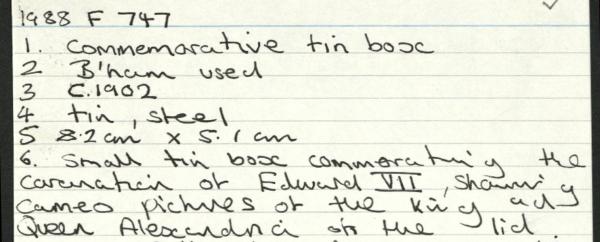 1988 F 747
1. Commemorative tin box
2 B'ham used
3 C.1902
4 tin, steel
5 8.2cm x 5.1cm
6. Small tin box commorating the
coronation of Edward VII, showing
cameo pictures of the king and
Queen Alexandria on the lid.